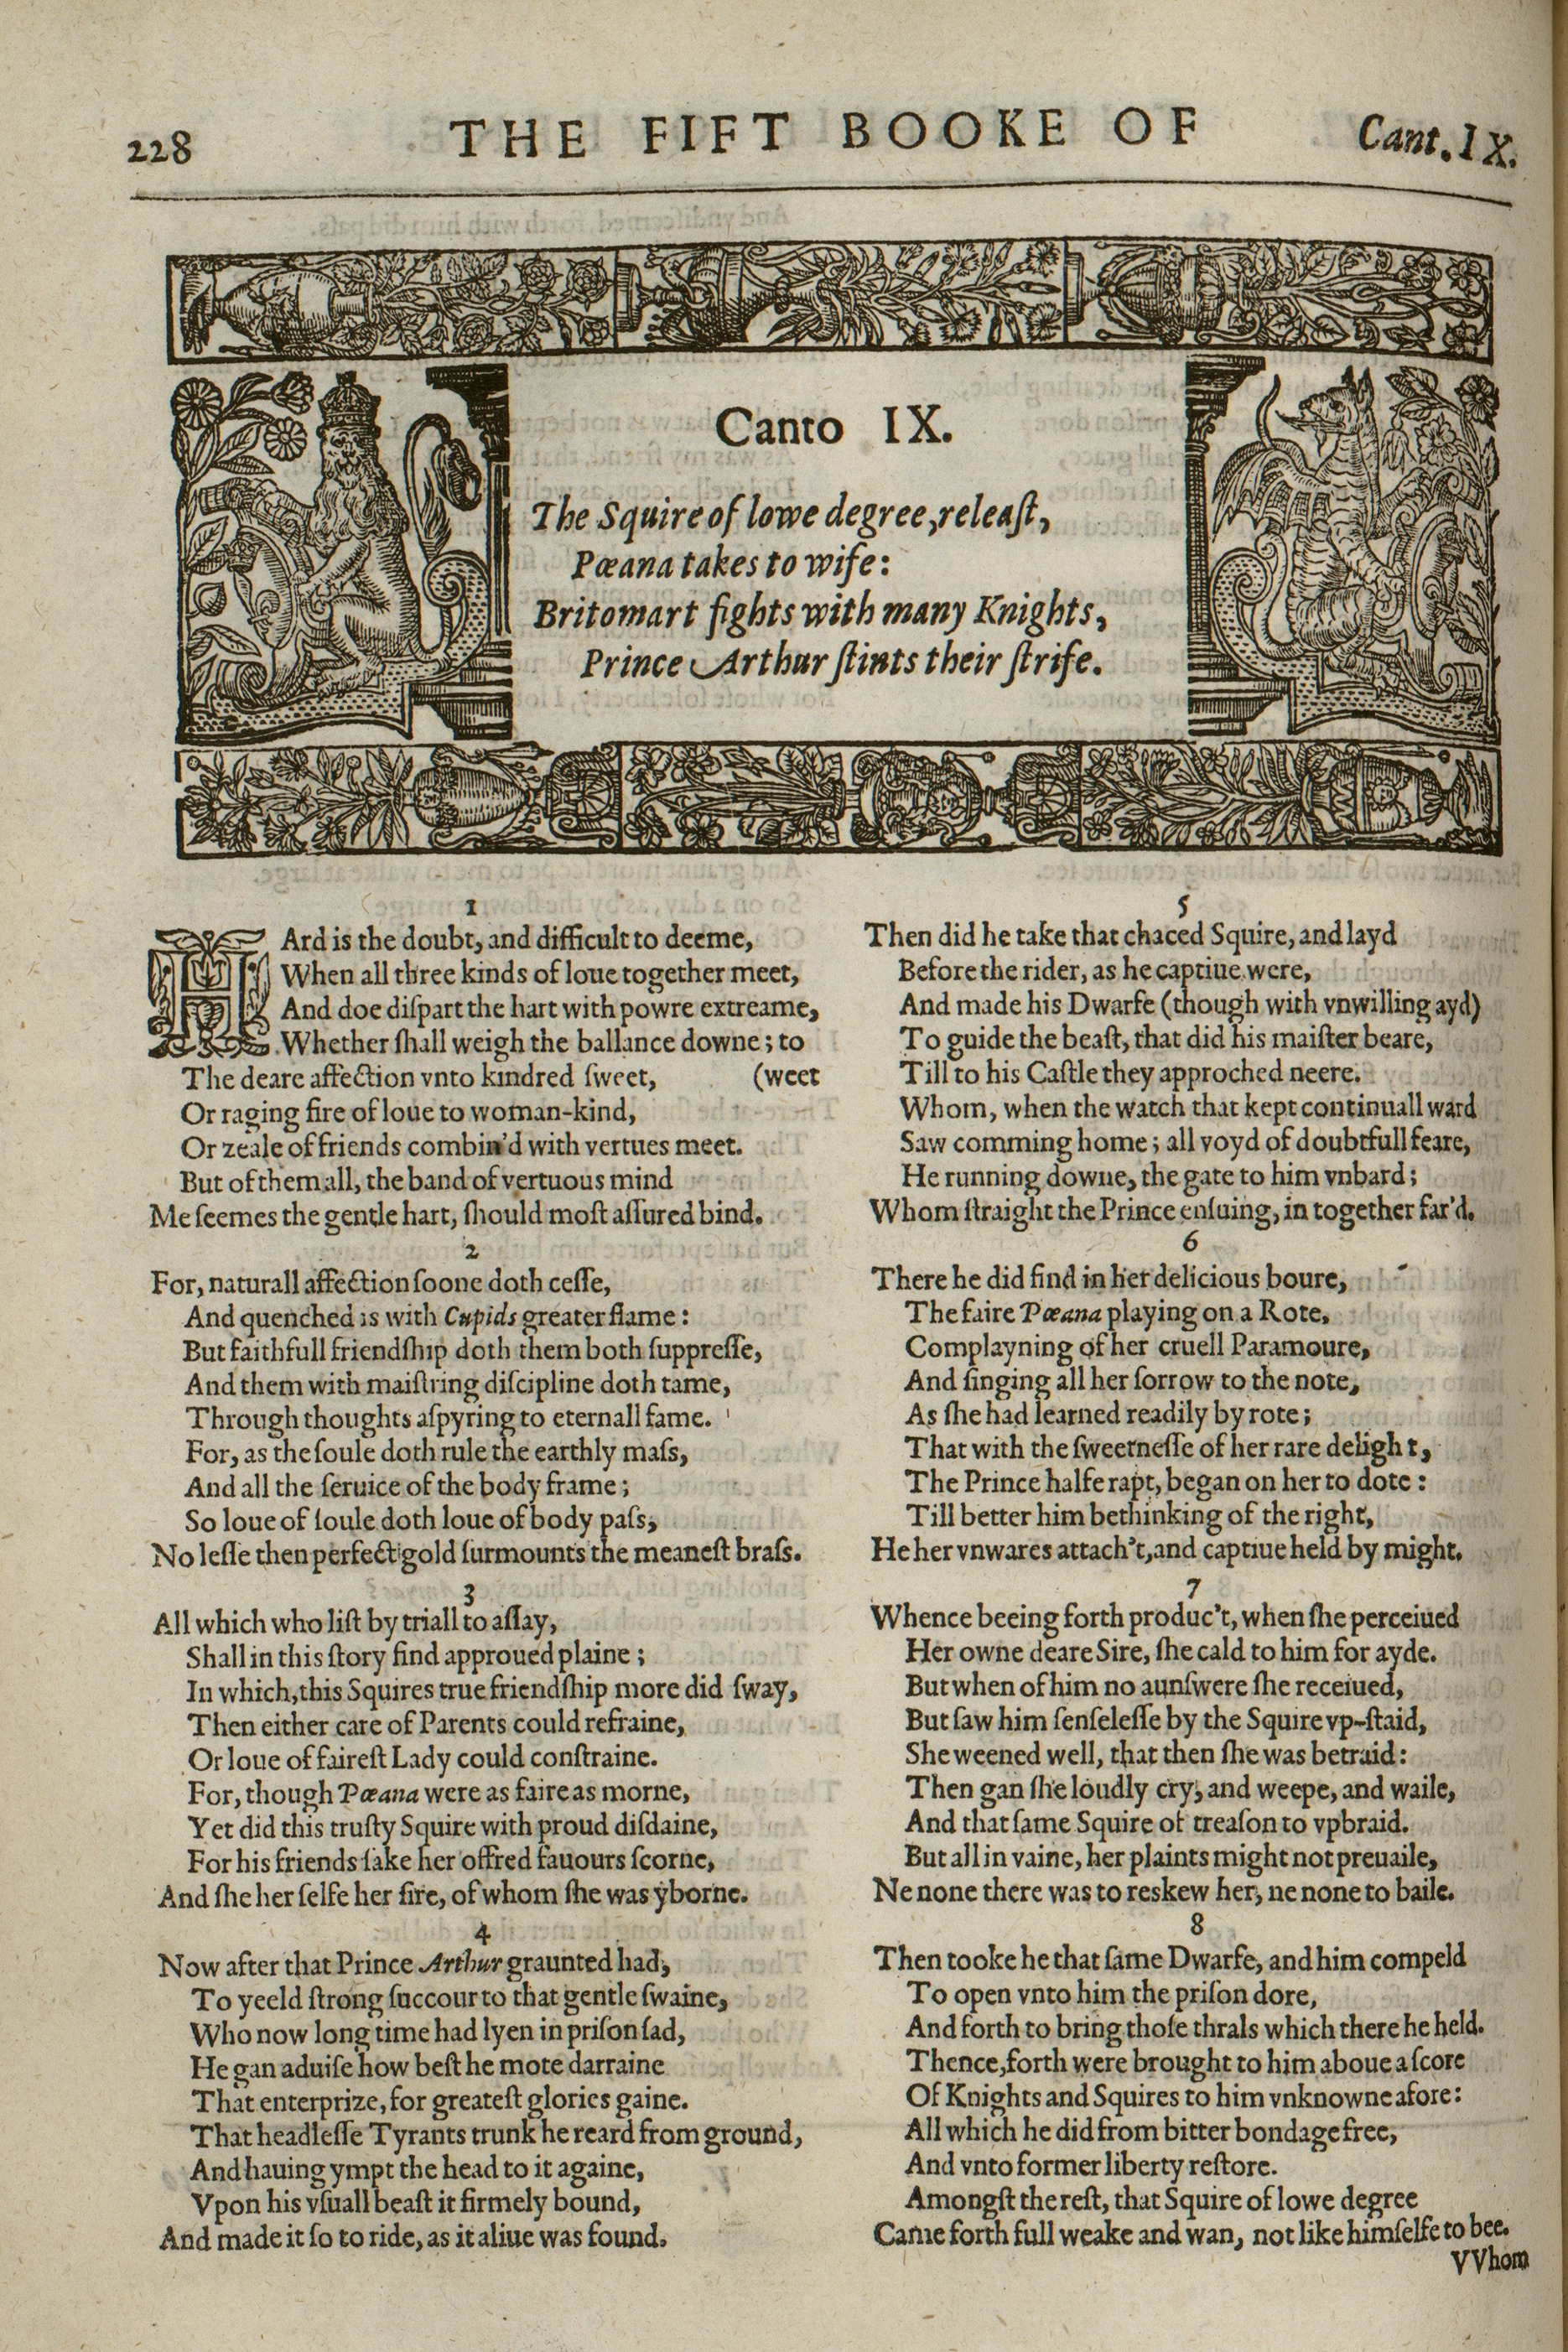 228 THE FIFT BOOKE OF Cant. IX.
Canto IX.
The Squire of lowe degree, releaſt,
Pœana takes to wife:
Britomart fights with many Knights,
Prince Arthur ſtints their ſtrife.
1
HArd is the doubt, and difficult to deeme,
When all three kinds of loue together meet,
And doe diſpart the hart with powre extreame,
Whether ſhall weigh the ballance downe; to
The deare affection vnto kindred ſweet, (weet
Or raging fire of loue to woman-kind,
Or zeale of friends combin'd with vertues meet.
But of them all, the band of vertuous mind
Me ſeemes the gentle hart, ſhould moſt aſſured bind.
2
For, naturall affection ſoone doth ceſſe,
And quenched is with Cupids greater flame:
But faithfull friendſhip doth them both ſuppreſſe,
And them with maiſtring diſcipline doth tame,
Through thoughts aſpyring to eternall fame.
For, as the ſoule doth rule the earthly maſs,
And all the ſeruice of the body frame;
So loue of ſoule doth loue of body paſs,
No leſſe then perfect gold ſurmounts the meaneſt braſs.
3
All which who liſt by triall to aſſay,
Shall in this ſtory find approued plaine;
In which, this Squires true friendſhip more did ſway,
Then either care of Parents could refraine,
Or loue of faireſt Lady could conſtraine.
For, though Pœana were as faire as morne,
Yet did this truſty Squire with proud diſdaine,
For his friends ſake her offred fauours ſcorne,
And ſhe her ſelfe her ſire, of whom ſhe was yborne.
4
Now after that Prince Arthur graunted had,
To yeeld ſtrong ſuccour to that gentle ſwaine,
Who now long time had lyen in priſon ſad,
He gan aduiſe how beſt he mote darraine
That enterprize, for greateſt glories gaine.
That headleſſe Tyrants trunk he reard from ground,
And hauing ympt the head to it againe,
Vpon his vſuall beaſt it firmely bound,
And made it ſo to ride, as it aliue was found.
5
Then did he take that chaced Squire, and layd
Before the rider, as he captiue were,
And made his Dwarfe (though with vnwilling ayd)
To guide the beaſt, that did his maiſter beare,
Till to his Caſtle they approched neere.
Whom, when the watch that kept continuall ward
Saw comming home; all voyd of doubtfull feare,
He running downe, the gate to him vnbard;
Whom ſtraight the Prince enſuing, in together far'd.
6
There he did find in her delicious boure,
The faire Pœana playing on a Rote,
Complayning of her cruell Paramoure,
And ſinging all her ſorrow to the note,
As ſhe had learned readily by rote;
That with the ſweetneſſe of her rare delight,
The Prince halfe rapt, began on her to dote:
Till better him bethinking of the right,
He her vnwares attach't, and captiue held by might.
7
Whence beeing forth produc't, when ſhe perceiued
Her owne deare Sire, ſhe cald to him for ayde.
But when of him no aunſwere ſhe receiued,
But ſaw him ſenſeleſſe by the Squire vp-ſtaid,
She weened well, that then ſhe was betraid:
Then gan ſhe loudly cry, and weepe, and waile,
And that ſame Squire of treaſon to vpbraid.
But all in vaine, her plaints might not preuaile,
Ne none there was to reskew her, ne none to baile.
8
Then tooke he that ſame Dwarfe, and him compeld
To open vnto him the priſon dore,
And forth to bring thoſe thrals which there he held.
Thence, forth were brought to him aboue a ſcore
Of Knights and Squires to him vnknowne afore:
All which he did from bitter bondage free,
And vnto former liberty reſtore.
Amongſt the reſt, that Squire of lowe degree
Came forth full weake and wan, not like himſelfe to bee.
VVhom